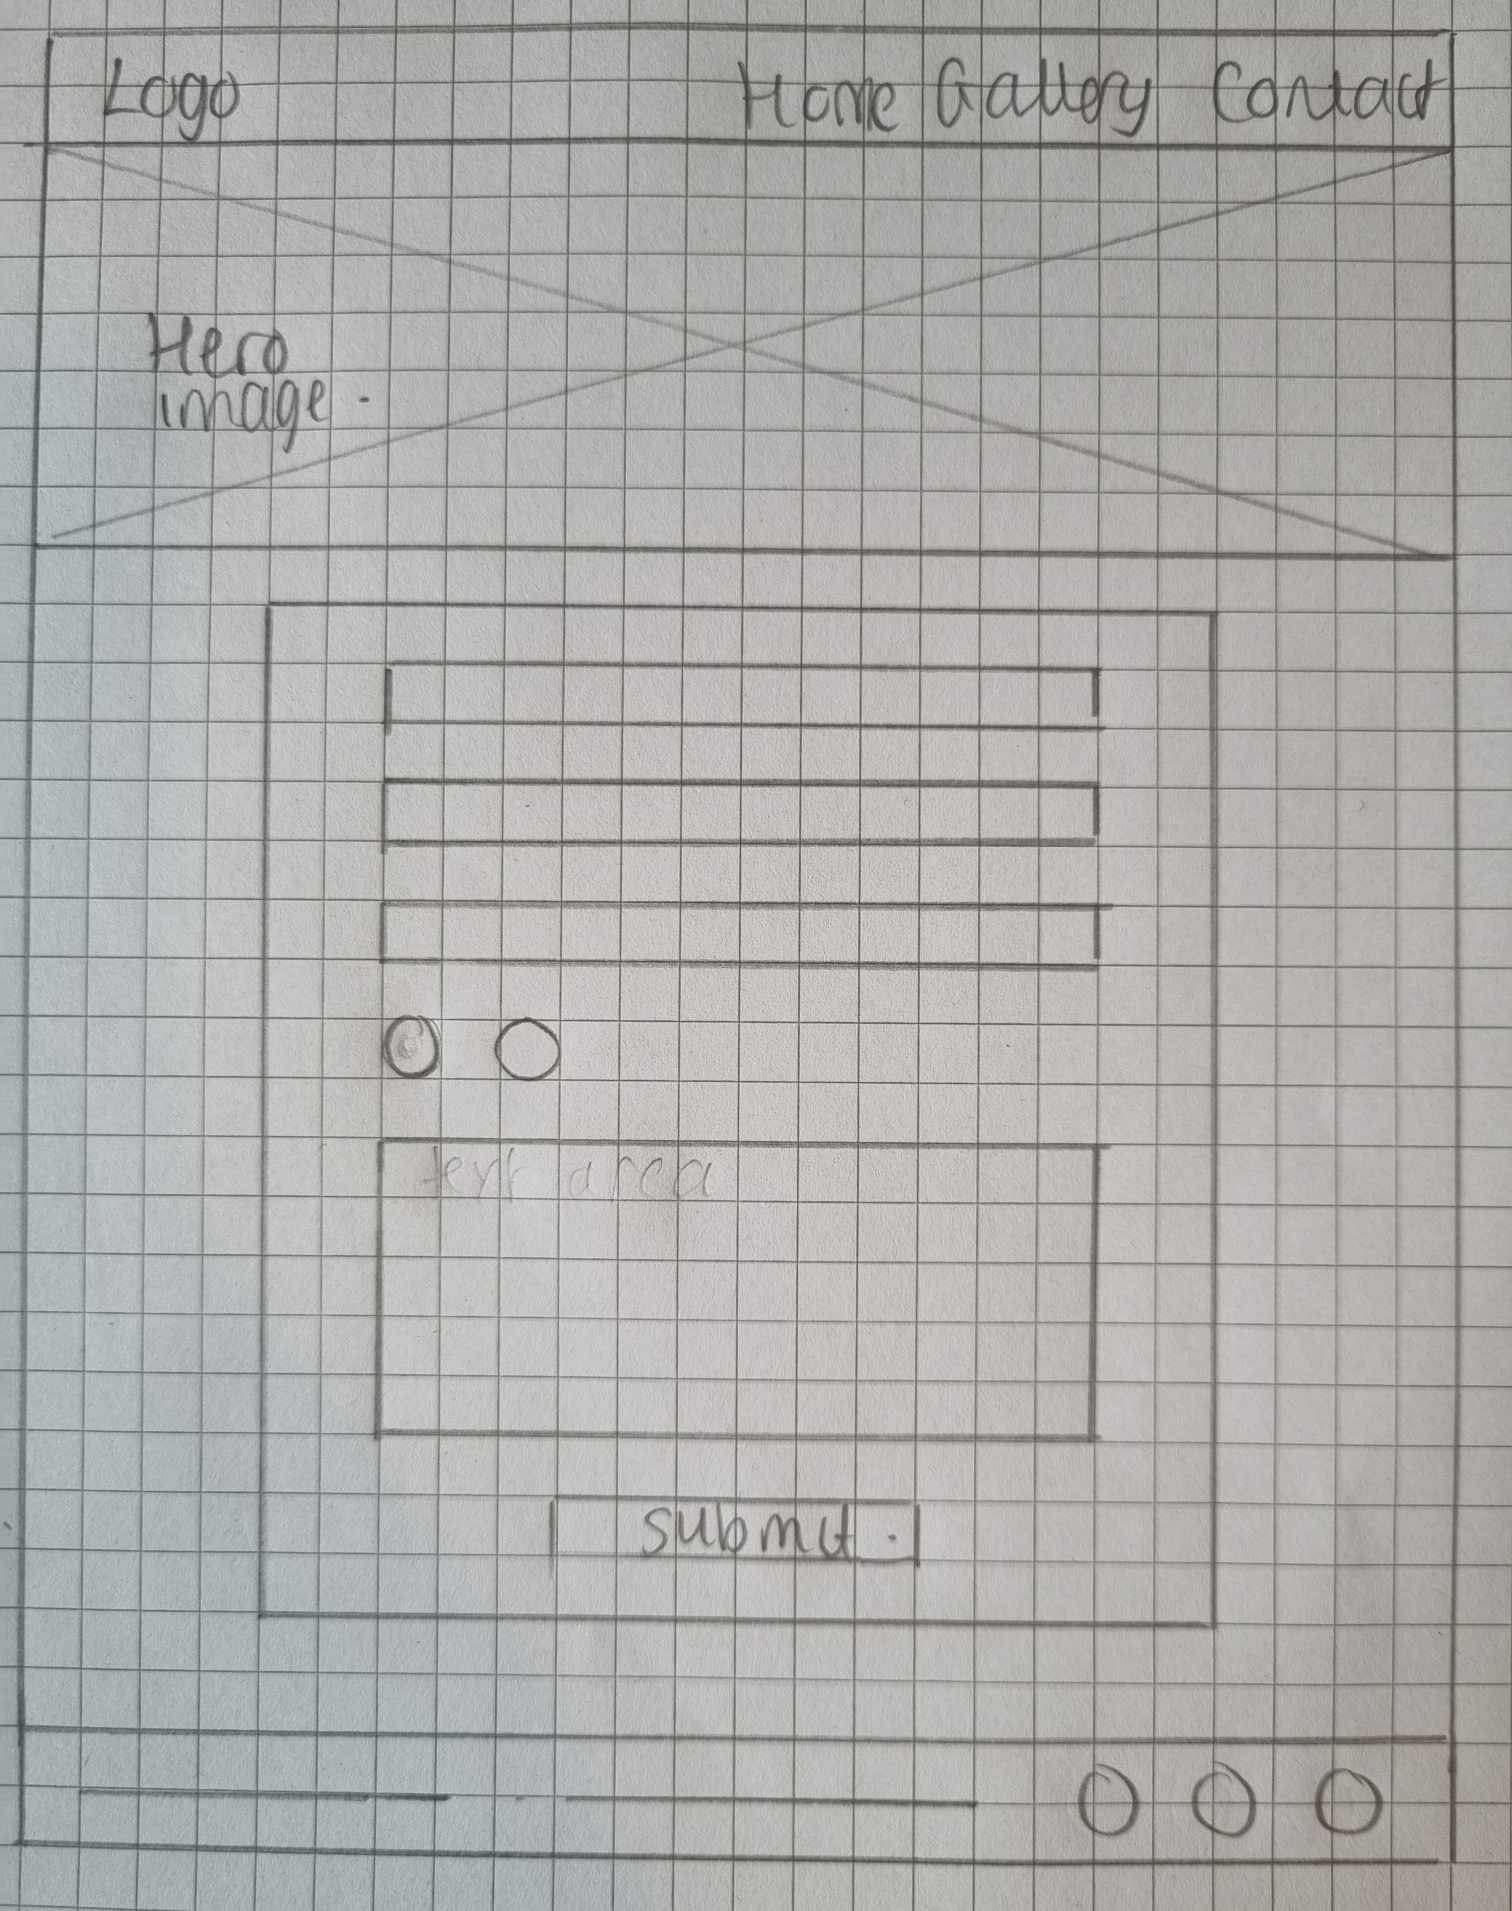 Logo Home Gallery Contact
Hero
image.
text area
submit.